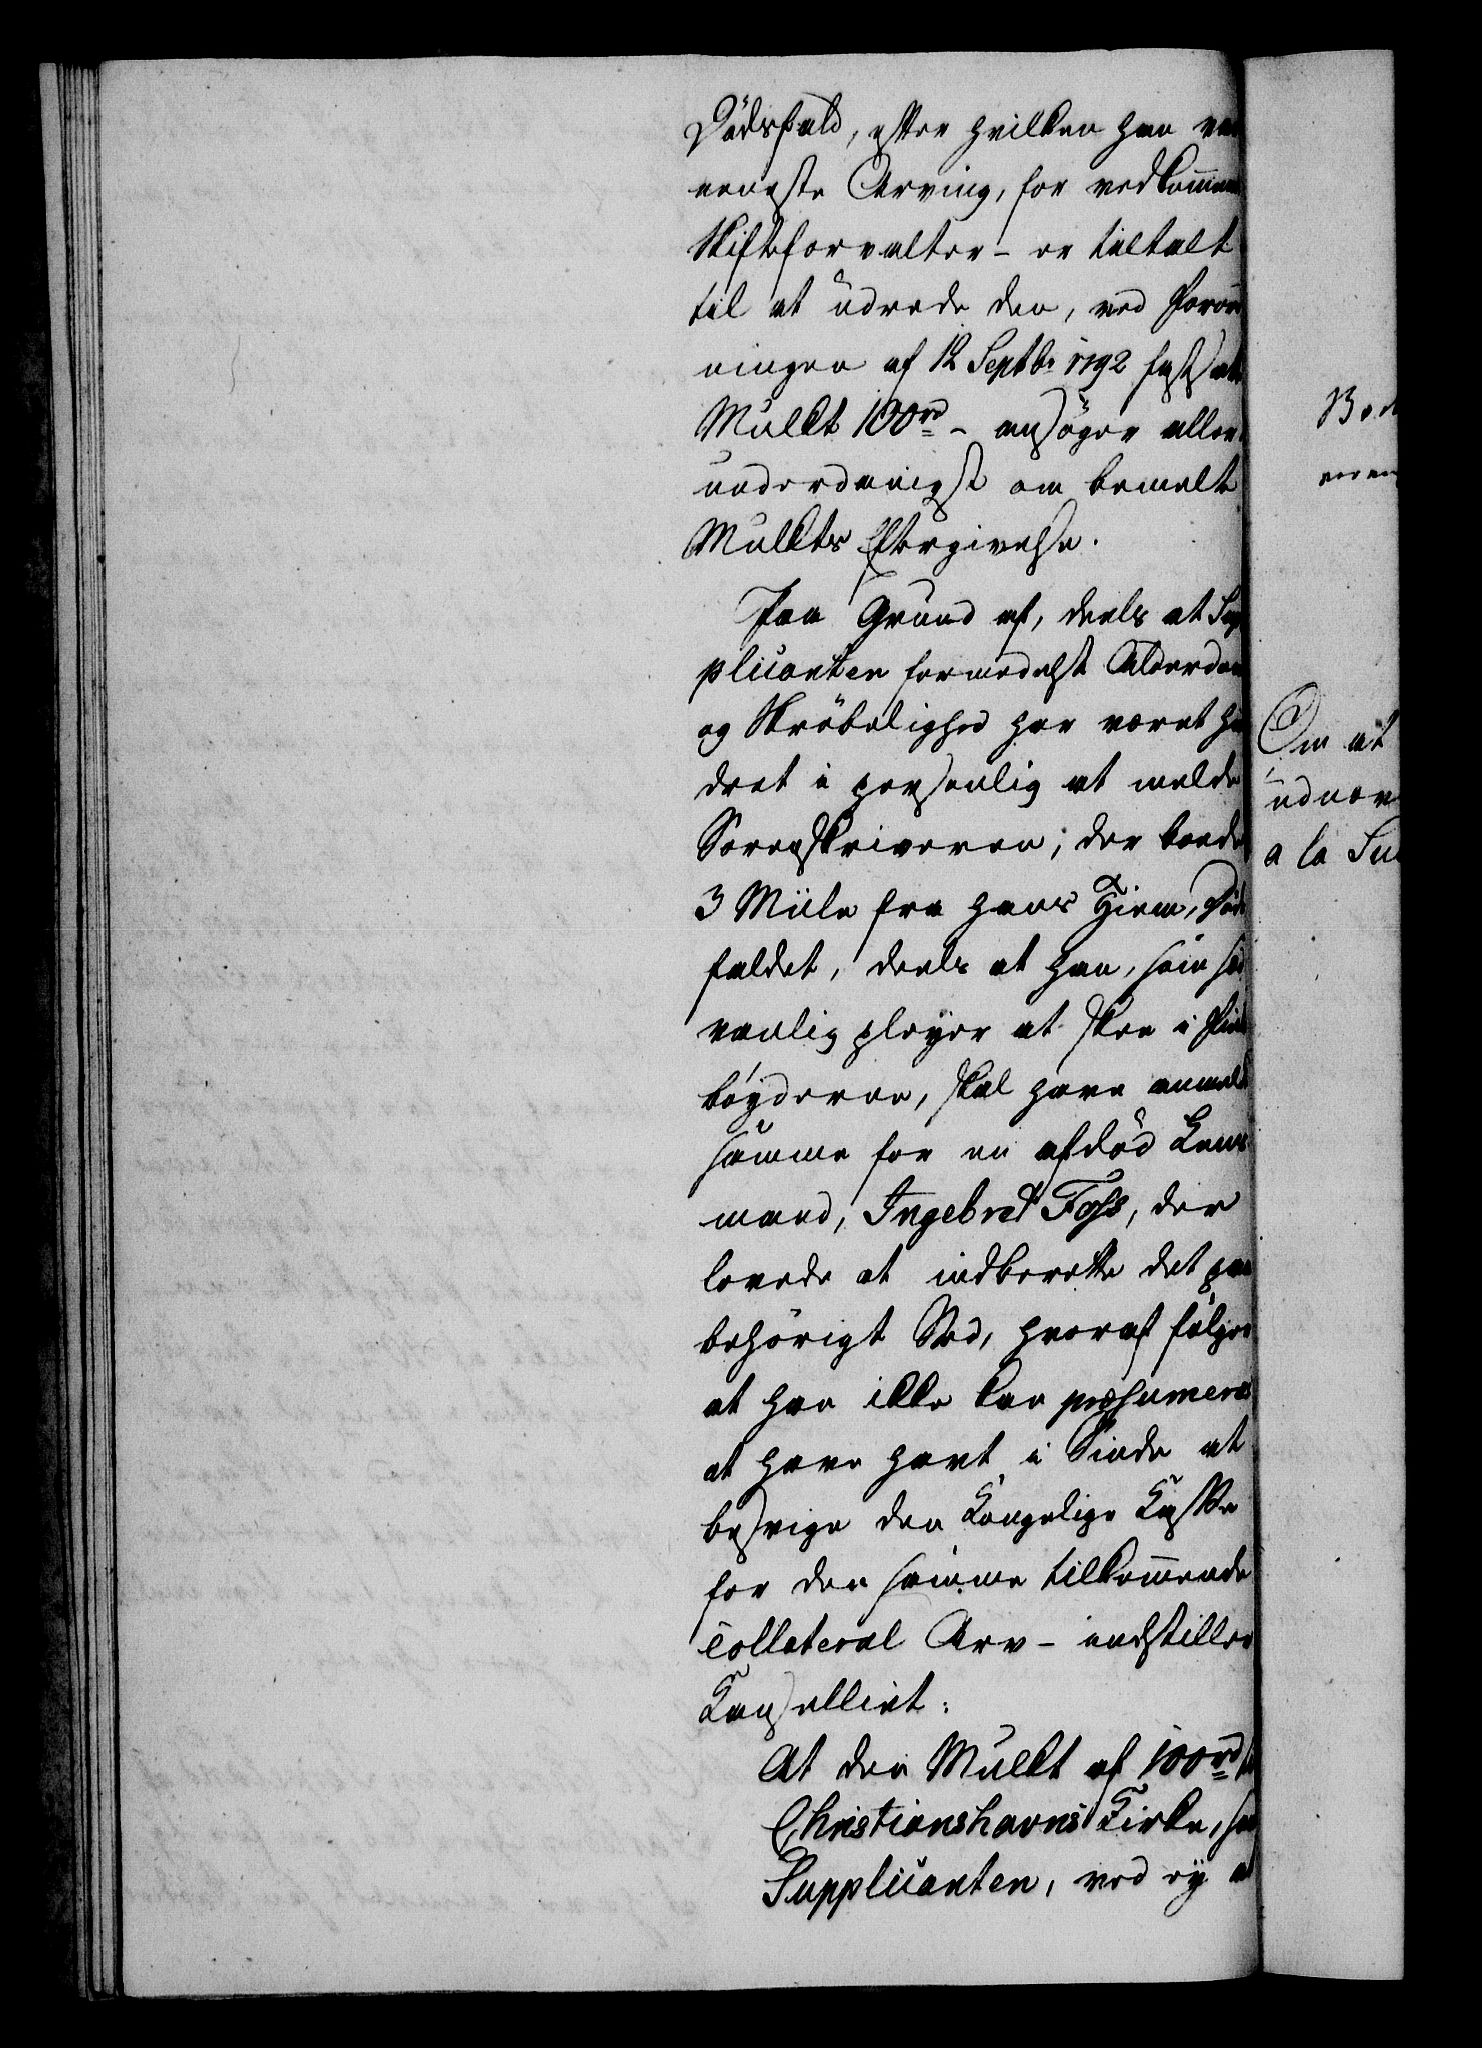 Dødsfald, efter hvilken han var
eeneste Arving, for vedkommen
Skifteforvalter - er tiltalt
til at udrede den, ved Forord
ningen af 12 Septbr 1792 fastsatte
Mulkt 100 rd - ansøger aller
underdanigst om bemelte
Mulkts Eftergivelse.
Paa Grund af, deels at Sup
plicanten formedelst Alderdom
og Skrøbelighed har været hin
dret i personlig at melde
Sorenskriveren, der boede
3 Miile fra hans Hiem, Døds
faldet, deels at han, som sæd
vanlig pleyer at skee i Field
bøyderne, skal have anmeldt
samme for en afdød Lens
mand, Ingebret Foss, der
lovede at indberette det paa
behørigt Sted, hvoraf følger
at han ikke kan præsumeres
at have havt i Sinde at
besvige den Kongelige Kasse
for den samme tilkommende
Collateral Arv - indstiller
Cancelliet:
At den Mulkt af 100 rd til
Christianshavns Kirke, som
Supplicanten, ved ey at
Om at
udnæv
a la Su